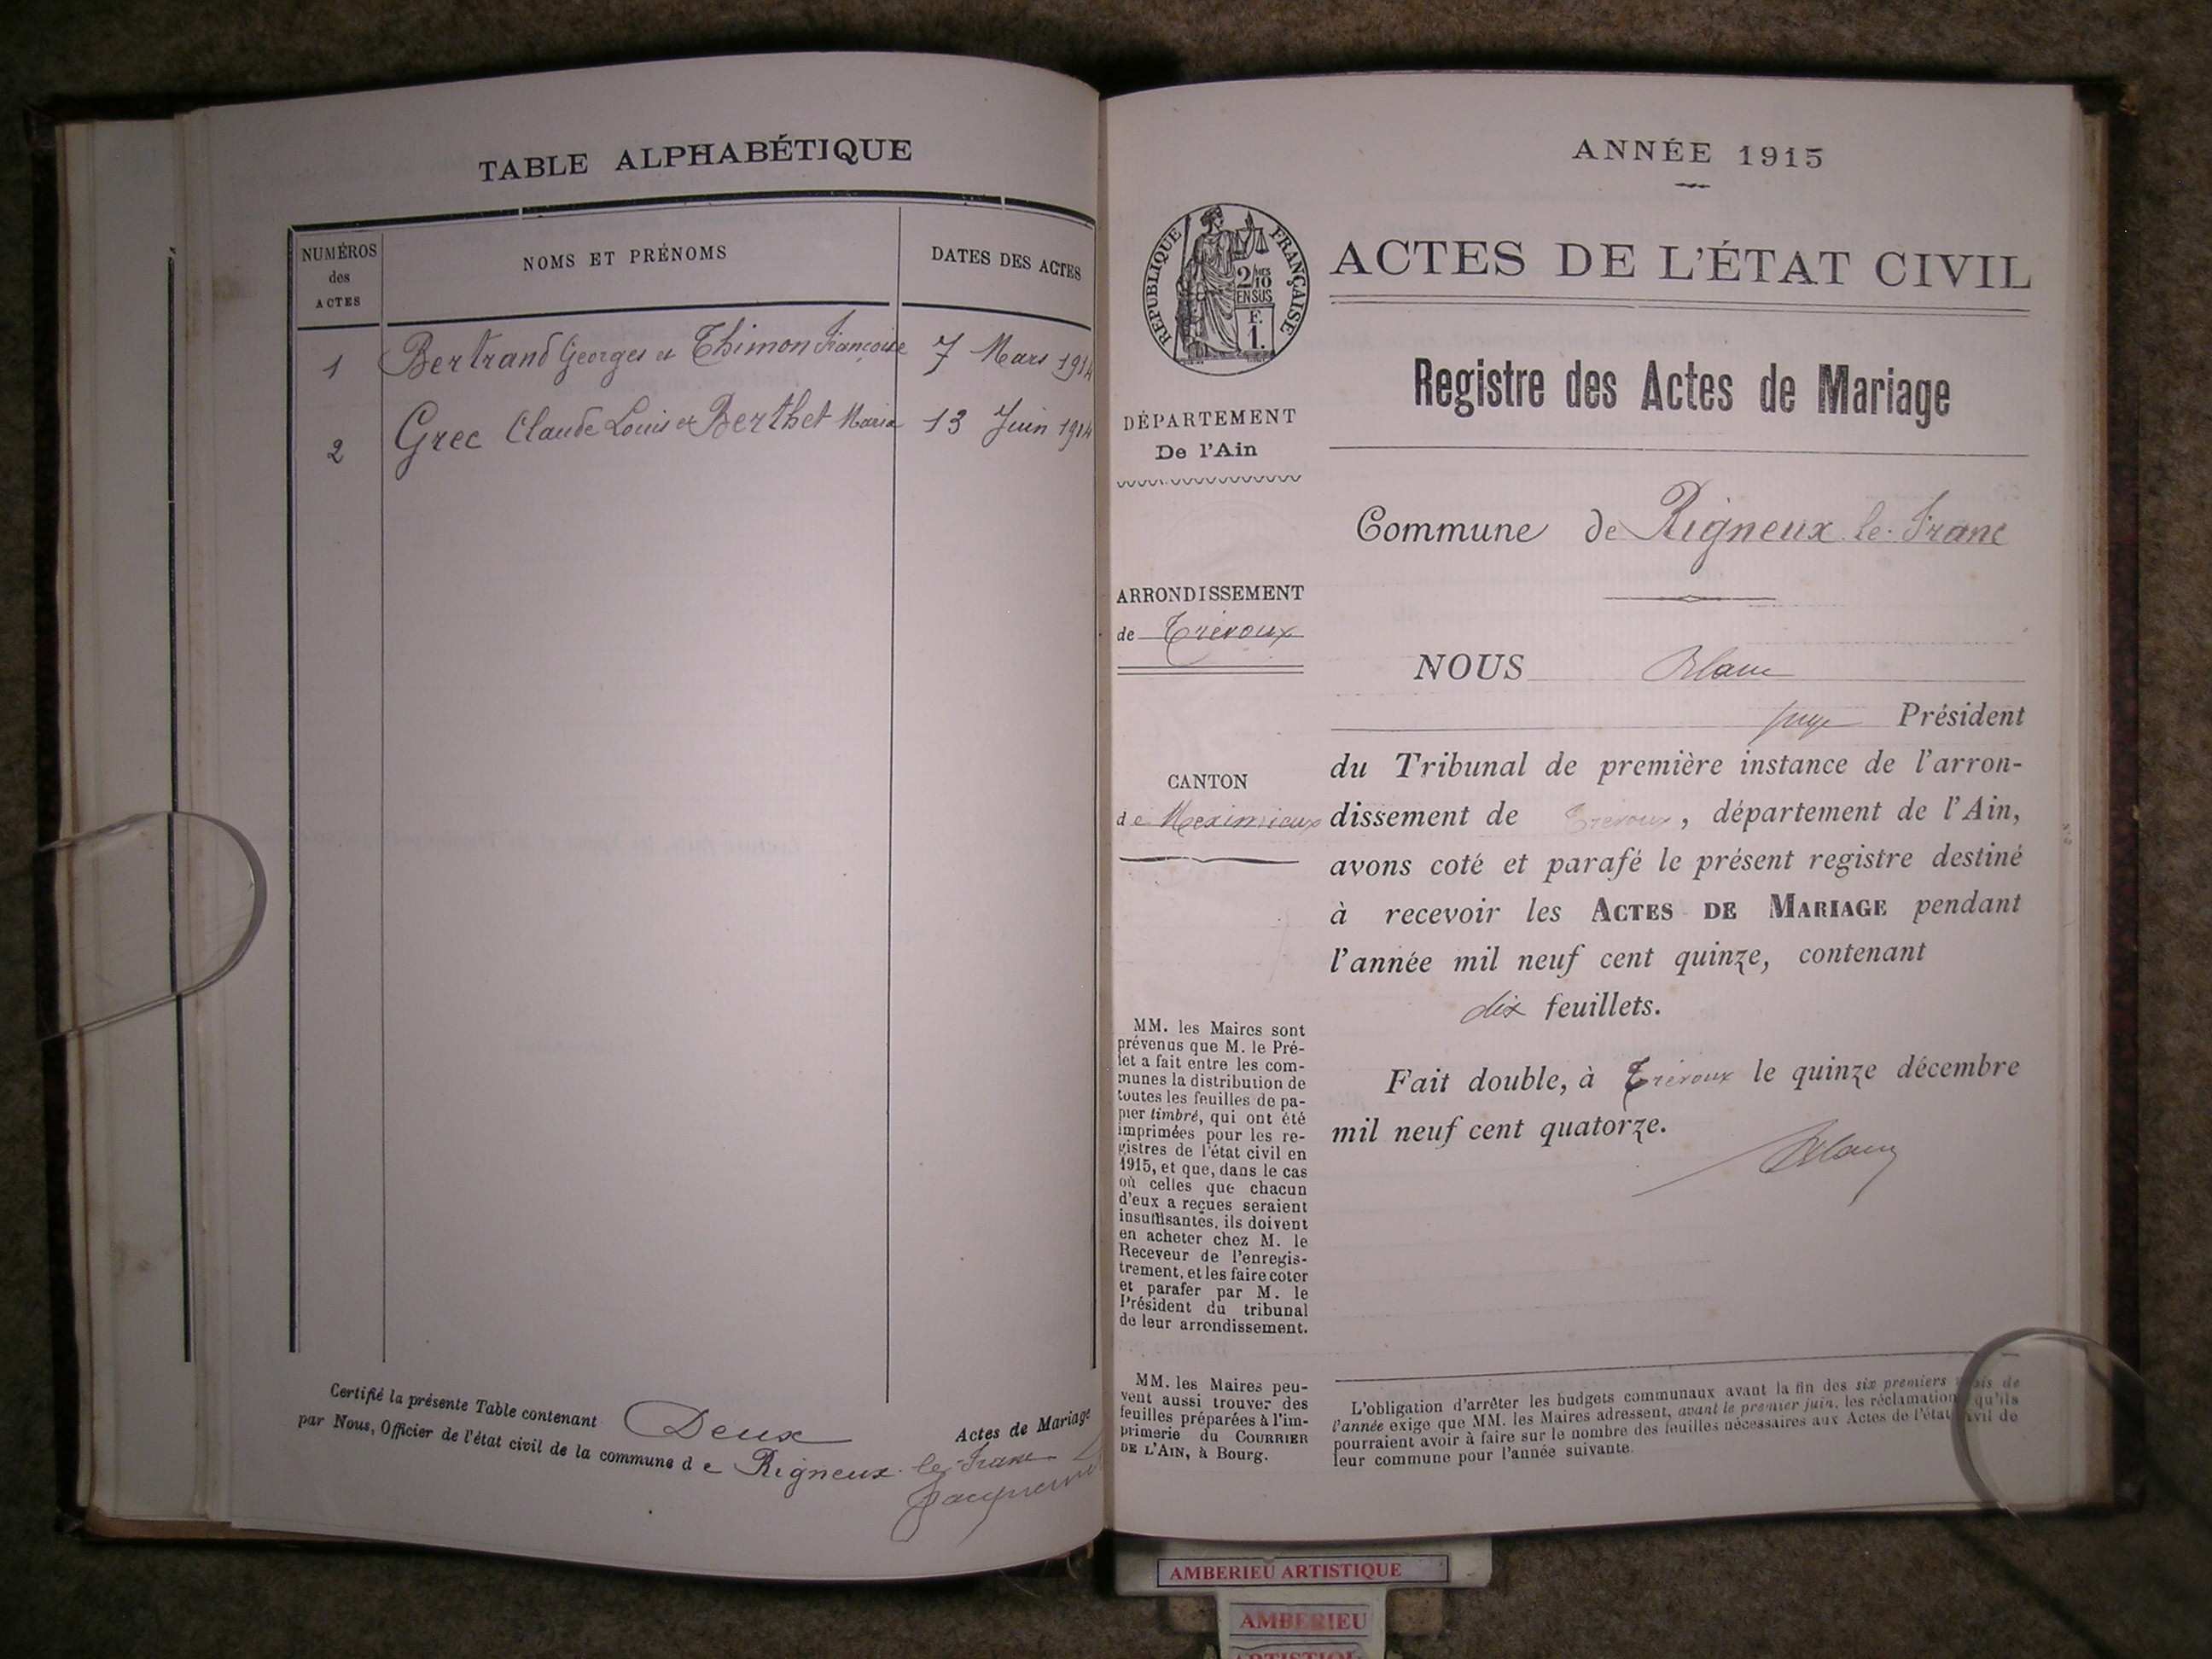 TABLE ALPHABÉTIQUE
NUMÉROS
des
ACTES
NOMS ET PRÉNOMS
DATES DES ACTES
1 Bertrand Georges et Thimon Françoise 7 Mars 1914
2 Grec Claude Louis et Berthet Maria 13 Juin 1914
Certifié la présente Table contenant Deux Actes de Mariage
par Nous, Officier de l'état civil de la commune de Rigneux-le-Franc
ANNÉE 1915
RÉPUBLIQUE FRANÇAISE
2/10 MES
EN SUS
F.
1.
ACTES DE L'ÉTAT CIVIL
Registre des Actes de Mariage
DÉPARTEMENT
De l'Ain
Commune de Rigneux-le-Franc
ARRONDISSEMENT
de Trévoux
CANTON
de Meximieux
NOUS Blanc
juge Président
du Tribunal de première instance de l'arron-
dissement de Trévoux, département de l'Ain,
avons coté et parafé le présent registre destiné
à recevoir les ACTES DE MARIAGE pendant
l'année mil neuf cent quinze, contenant
dix feuillets.
Fait double, à Trévoux le quinze décembre
mil neuf cent quatorze.
Blanc
MM. les Maires sont
prévenus que M. le Pré-
fet a fait entre les com-
munes la distribution de
toutes les feuilles de pa-
pier timbré, qui ont été
imprimées pour les re-
gistres de l'état civil en
1915, et que, dans le cas
où celles que chacun
d'eux a reçues seraient
insuffisantes, ils doivent
en acheter chez M. le
Receveur de l'enregis-
trement, et les faire coter
et parafer par M. le
Président du tribunal
de leur arrondissement.
MM. les Maires peu-
vent aussi trouver des
feuilles préparées à l'im-
primerie du COURRIER
DE L'AIN, à Bourg.
L'obligation d'arrêter les budgets communaux avant la fin des six premiers mois de
l'année exige que MM. les Maires adressent, avant le premier juin, les réclamations qu'ils
pourraient avoir à faire sur le nombre des feuilles nécessaires aux Actes de l'état civil de
leur commune pour l'année suivante.
AMBERIEU ARTISTIQUE
AMBERIEU
ARTISTIQUE